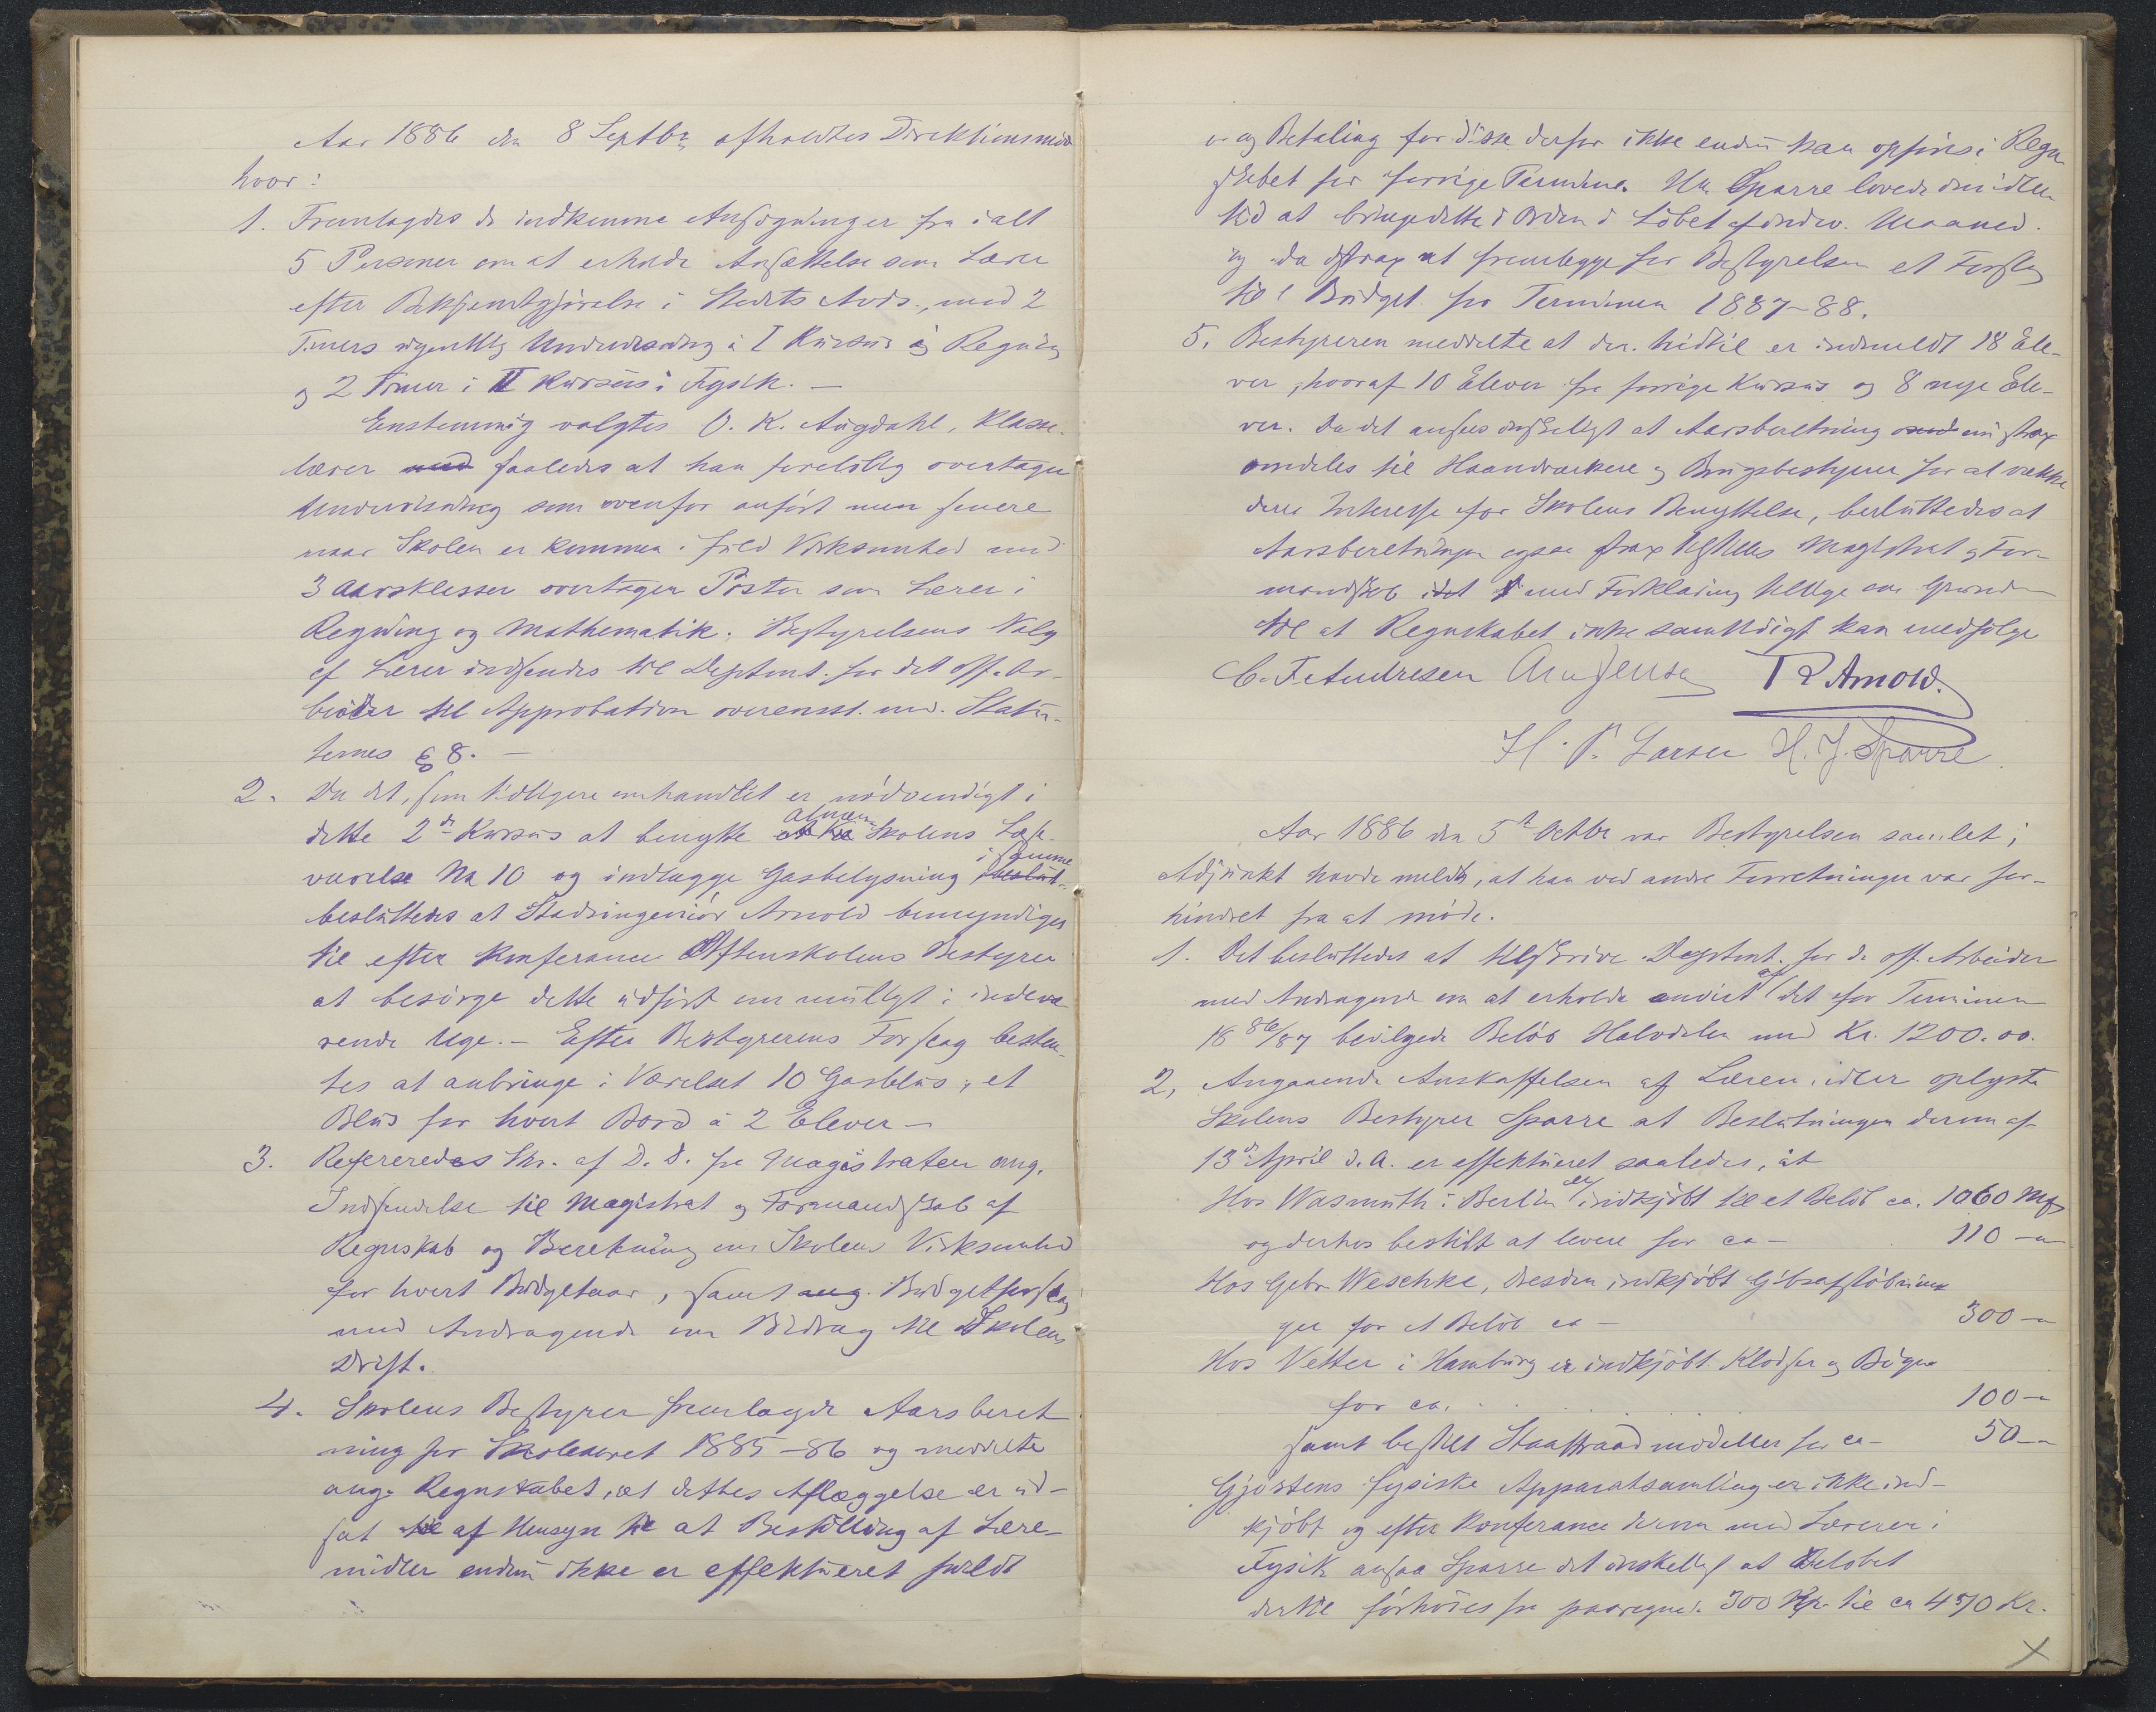 Aar 1886 den 8 Septbr. afholdtes Direktionsmøde
hvor:
1. Fremlagdes de indkomne Ansøgninger fra ialt
5 Personer om at erholde Ansættelse som Lærer
efter Bekjentgjørelse i Stedets Avis, med 2
Timers ugentlig Undervisning i I Kursus i Regning
og 2 Timer i II Kursus i Fysik. —
Enstemmig valgtes O. K. Augdahl, Klasse-
lærer med saaledes at han foreløbig overtager
Undervisning som ovenfor anført men senere
naar Skolen er kommen i fuld Virksomhed med
3 Aarsklasser overtager Posten som Lærer i
Regning og Mathematik. Bestyrelsens Valg
af Lærer indsendes til Deptmt. for det off. Ar-
beider til Approbation overensst. med Statu-
ternes § 8. —
2. Da det, som tidligere omhandlet er nødvendigt i
dette 2det Kursus at benytte almen Skolens Læse-
værelse No 10 og indlægge Gasbelysning i samme beslut-
besluttedes at Stadsingeniør Arnold bemyndiges
til efter Konferance Aftenskolens Bestyrer
at besørge dette udført om muligt i indevæ-
rende Uge. — Efter Bestyrerens Forslag bestem-
tes at anbringe i Værelset 10 Gasblus, et
Blus for hvert Bord à 2 Elever —
3. Refereredes Skr. af D. D. fra Magistraten ang.
Indsendelse til Magistrat og Formandskab af
Regnskab og Beretning om Skolens Virksomhed
for hvert Budgetaar, samt ang. Budgetforslag
med Andragende om Bidrag til Skolens
Drift.
4. Skolens Bestyrer fremlagde Aarsberet-
ning for Skoleaaret 1885-86 og meddelte
ang. Regnskabet, at dettes Aflæggelse er ud-
sat til af Hensyn til at Bestilling af Lære-
midler endnu ikke er effektueret fuldt
og Betaling for disse derfor ikke endnu kan opføres i Regn-
skabet for forrige Termin. Hr. Sparre lovede imidler-
tid at bringe dette i Orden i Løbet af indev. Maaned.
og da strax at fremlægge for Bestyrelsen et Forslag
til Budget for Terminen 1887-88.
5. Bestyreren meddelte at der hidtil er indmeldt 18 Ele-
ver, hvoraf 10 Elever fra forrige Kursus og 8 nye Ele-
ver. Da det ansees ønskeligt at Aarsberetning nu strax
omdeles til Haandværkere og Brugsbestyrere for at vække
deres Interesse for Skolens Benyttelse, besluttedes at
Aarsberetningen ogsaa strax tilstilles Magistrat og For-
mandskab med Forklaring tillige om Grunden
til at Regnskabet ikke samtidigt kan medfølge
C. F. Andresen Jensen R Arnold.
H. P. Larsen H. J. Sparre.
Aar 1886 den 5te Octbr var Bestyrelsen samlet;
Adjunkt havde meldt, at han ved andre Forretninger var for-
hindret fra at møde.
1. Det besluttedes at tilskrive Deptmt. for de off. Arbeider
med Andragende om at erholde anvist af det for Terminen
1886/87 bevilgede Beløb Halvdelen med Kr. 1200.00.
2, Angaaende Anskaffelsen af Læremidler oplyste
Skolens Bestyrer Sparre at Beslutningen derom af
13de April d. A. er effektueret saaledes, at
Hos Wasmuth i Berlin er indkjøbt til et Beløb ca. 1060 Mk
og derhos bestilt at levere for ca — 110 — "
Hos Gebr. Weschke, Dresden indkjøbt Gibsafstøbnin-
ger for et Beløb ca — 300 — "
Hos Vetter i Hamburg er indkjøbt Klodser og Bøger
for ca. . . . . . 100 — "
samt bestilt Staaltraadmodeller for ca — 50 — "
Gjøstens fysiske Apparatsamling er ikke ind-
kjøbt og efter Konferance derom med Læreren i
Fysik ansaa Sparre det ønskeligt at Beløbet
dertil forhøies fra paaregnede 300 Kr. til ca 450 Kr.
X